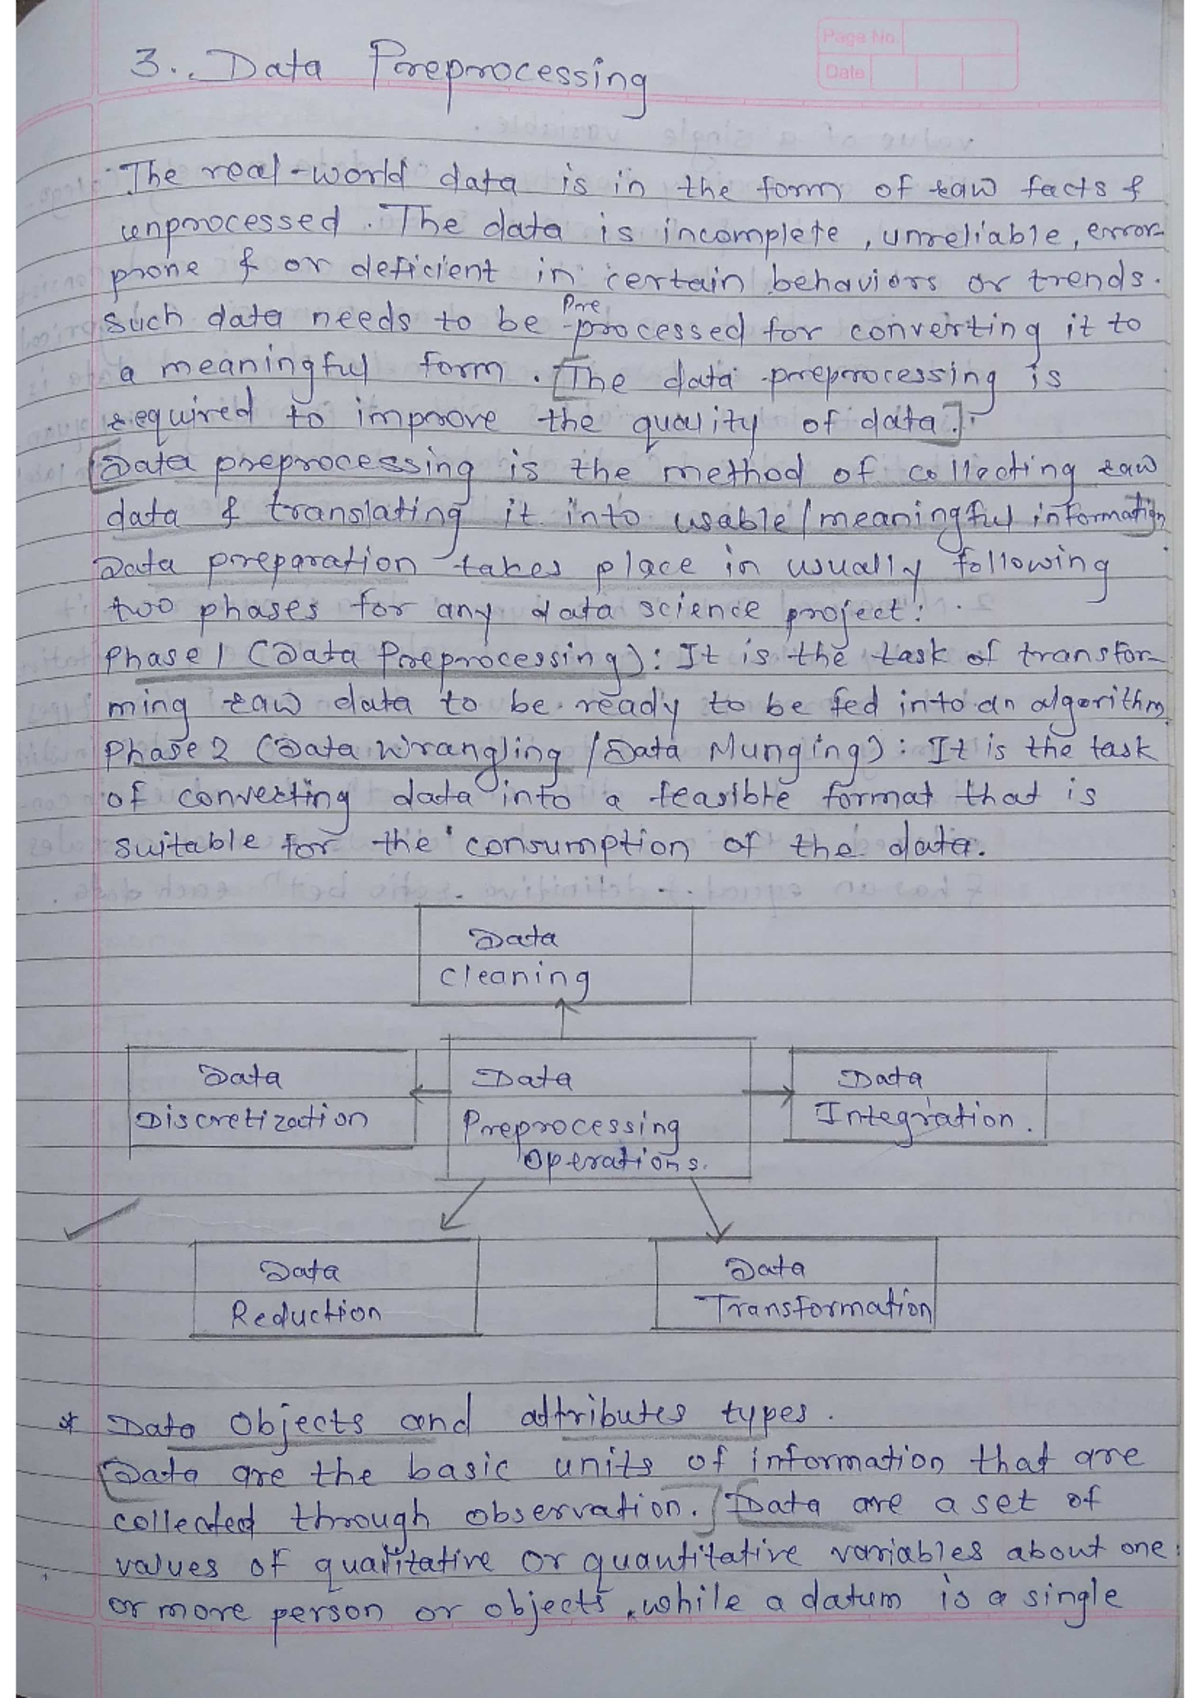 Page No.
Date
3. Data Preprocessing
The real-world data is in the form of raw facts &
unprocessed. The data is incomplete, unreliable, error-
prone & or deficient in certain behaviors or trends.
Such data needs to be preprocessed for converting it to
a meaningful form. [The data preprocessing is
required to improve the quality of data.]
[Data preprocessing is the method of collecting raw
data & translating it into usable/meaningful information]
Data preparation takes place in usually following
two phases for any data science project:
Phase 1 (Data Preprocessing): It is the task of transfor-
ming raw data to be ready to be fed into an algorithm.
Phase 2 (Data Wrangling / Data Munging): It is the task
of converting data into a feasible format that is
suitable for the consumption of the data.
Data
Cleaning
Data
Discretization
Data
Preprocessing
Operations.
Data
Integration.
Data
Reduction
Data
Transformation
* Data Objects and attributes types.
[Data are the basic units of information that are
collected through observation.] Data are a set of
values of qualitative or quantitative variables about one
or more person or objects, while a datum is a single